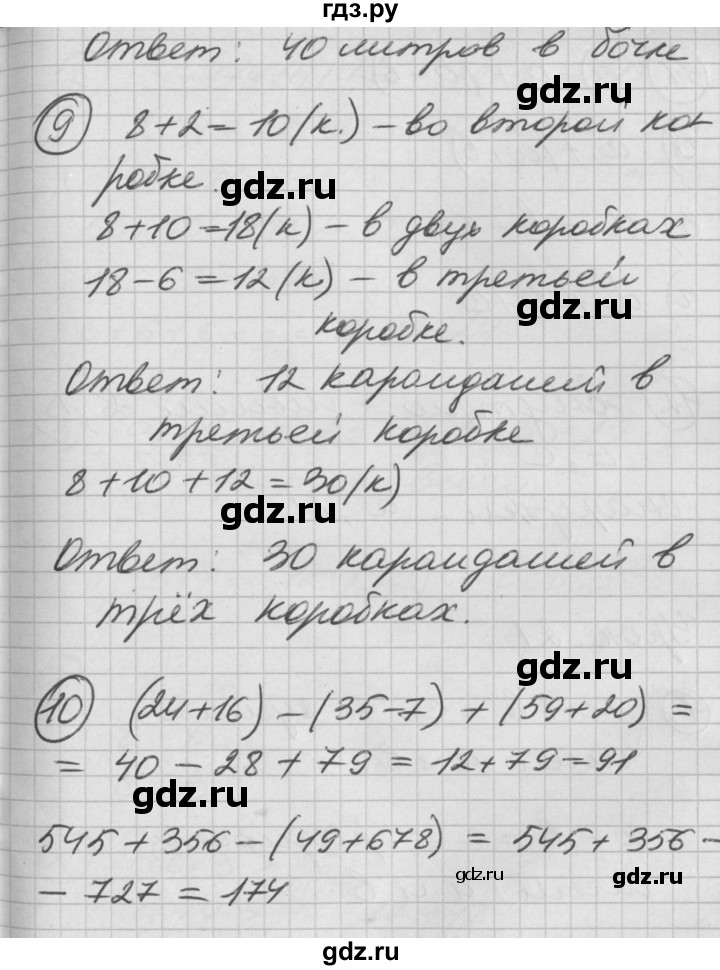 гдз.ру
Ответ: 40 литров в бочке
gdz.ru
9 8+2=10(к.) – во второй ко-
робке.
gdz.ru
8+10=18(к) – в двух коробках
gdz.ru
18-6=12(к.) – в третьей
gdz.ru
коробке.
Ответ: 12 карандашей в
третьей коробке
8+10+12=30(к)
gdz.ru
Ответ: 30 карандашей в
трёх коробках.
gdz.ru
10 (24+16)-(35-7)+(59+20)=
=40-28+79=12+79=91
gdz.ru
545+356-(49+678)=545+356-
gdz.ru
gdz.ru
-727=174
gdz.ru